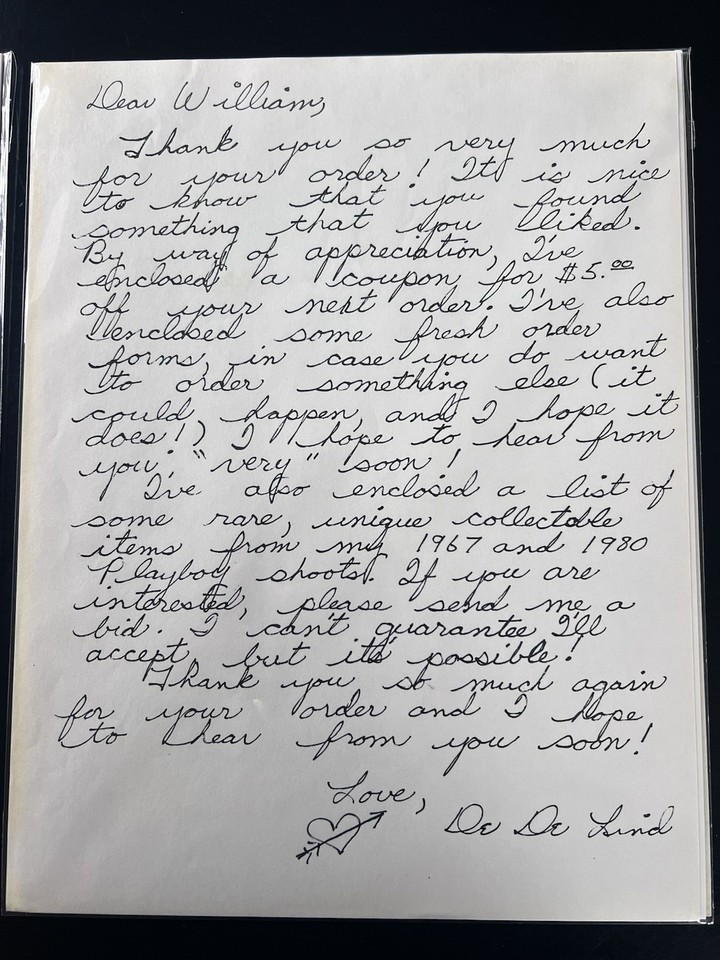 Dear William,
Thank you so very much
for your order! It is nice
to know that you found
something that you liked.
By way of appreciation, I've
enclosed a coupon for $5.00
off your next order. I've also
enclosed some fresh order
forms, in case you do want
to order something else (it
could happen, and I hope it
does!) I hope to hear from
you "very" soon!
I've also enclosed a list of
some rare, unique collectable
items from my 1967 and 1980
Playboy shoots. If you are
interested, please send me a
bid. I can't guarantee I'll
accept, but it's possible!
Thank you so much again
for your order and I hope
to hear from you soon!
Love,
De De Lind